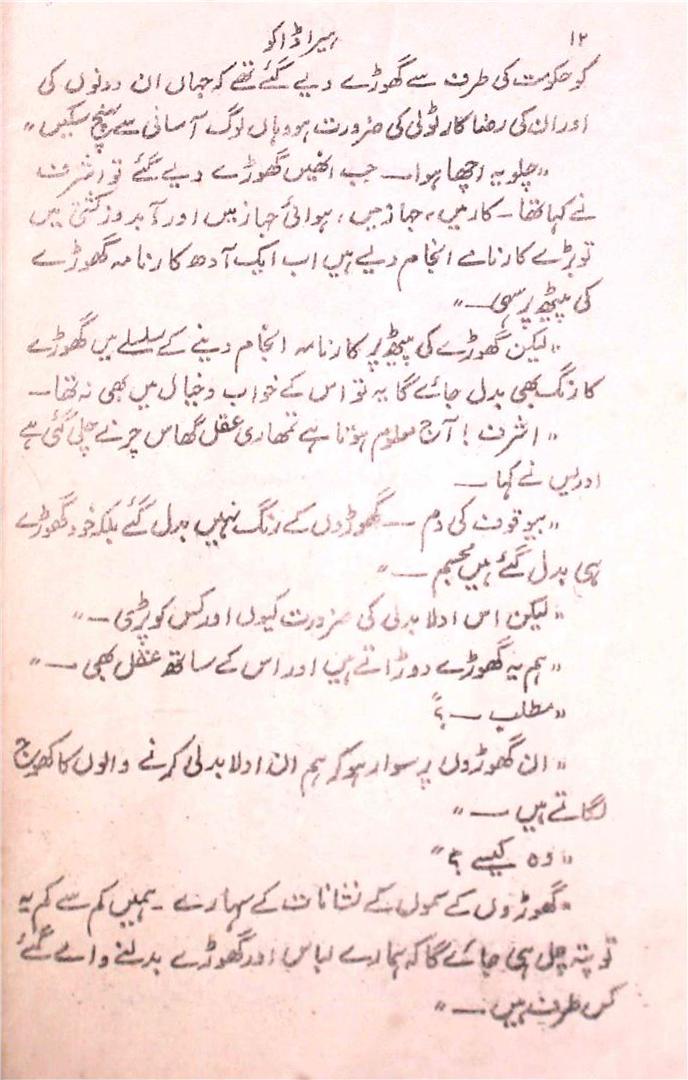 ۱۲ ہیرا ڈاکو
کو حکومت کی طرف سے گھوڑے دیے گئے تھے کہ جہاں ان دونوں کی
اور ان کی رضاکار ٹولی کی ضرورت ہو وہاں لوگ آسانی سے پہنچ سکیں "
" چلو یہ اچھا ہوا — جب انھیں گھوڑے دیے گئے تو اشرف
نے کہا تھا - کار میں ، جہاز میں ، ہوائی جہاز میں اور آبدوز کشتی میں
تو بڑے کارنامے انجام دیے ہیں اب ایک آدھ کارنامہ گھوڑے
کی پیٹھ پر سہی — "
" لیکن گھوڑے کی پیٹھ پر کارنامہ انجام دینے کے سلسلے میں گھوڑے
کا رنگ بھی بدل جائے گا یہ تو اس کے خواب و خیال میں بھی نہ تھا —
" اشرف ! آج معلوم ہوتا ہے تمھاری عقل گھاس چرنے چلی گئی ہے
ادریس نے کہا —
" بیوقوف کی دم — گھوڑوں کے رنگ نہیں بدل گئے بلکہ خود گھوڑے
ہی بدل گئے ہیں مجسم — "
" لیکن اس ادلا بدلی کی ضرورت کیوں اور کس کو پڑی — "
" ہم یہ گھوڑے دوڑاتے ہیں اور اس کے ساتھ عقل بھی — "
" مطلب — ؟ "
" ان گھوڑوں پر سوار ہو کر ہم ان ادلا بدلی کرنے والوں کا کھوج
لگاتے ہیں — "
" وہ کیسے ؟ "
" گھوڑوں کے سموں کے نشانات کے سہارے - ہمیں کم سے کم یہ
تو پتہ چل ہی جائے گا کہ ہمارے لباس اور گھوڑے بدلنے والے گئے
کس طرف ہیں — "